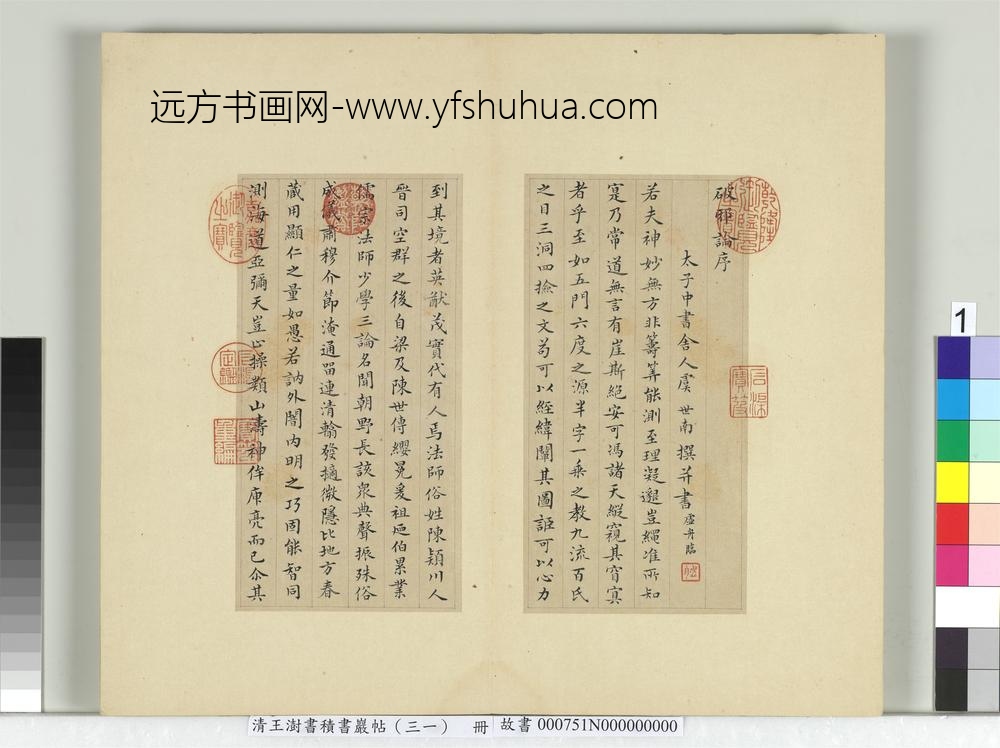 远方书画网-www.yfshuhua.com
破邪論序
太子中書舍人虞世南撰并書虛舟臨
若夫神妙無方非籌筭能測至理凝邈豈繩准所知
寔乃常道無言有崖斯絕安可馮諸天縱窺其窅寘
者乎至如五門六度之源半字一乘之教九流百氏
之目三洞四撿之文苟可以經緯闡其圖詎可以心力
到其境者英猷茂實代有人焉法師俗姓陳潁川人
晉司空群之後自梁及陳世傳纓冕爰祖洎伯累業
儒宗法師少學三論名聞朝野長該衆典聲振殊俗
成儀肅穆介節淹通留連清翰發擿微隱比地方春
藏用顯仁之量如愚若訥外闇內明之巧固能智同
測海道亞彌天豈止操類山濤神侔庾亮而已尒其
1
清王澍書積書巖帖（三一） 冊 故書 000751N000000000